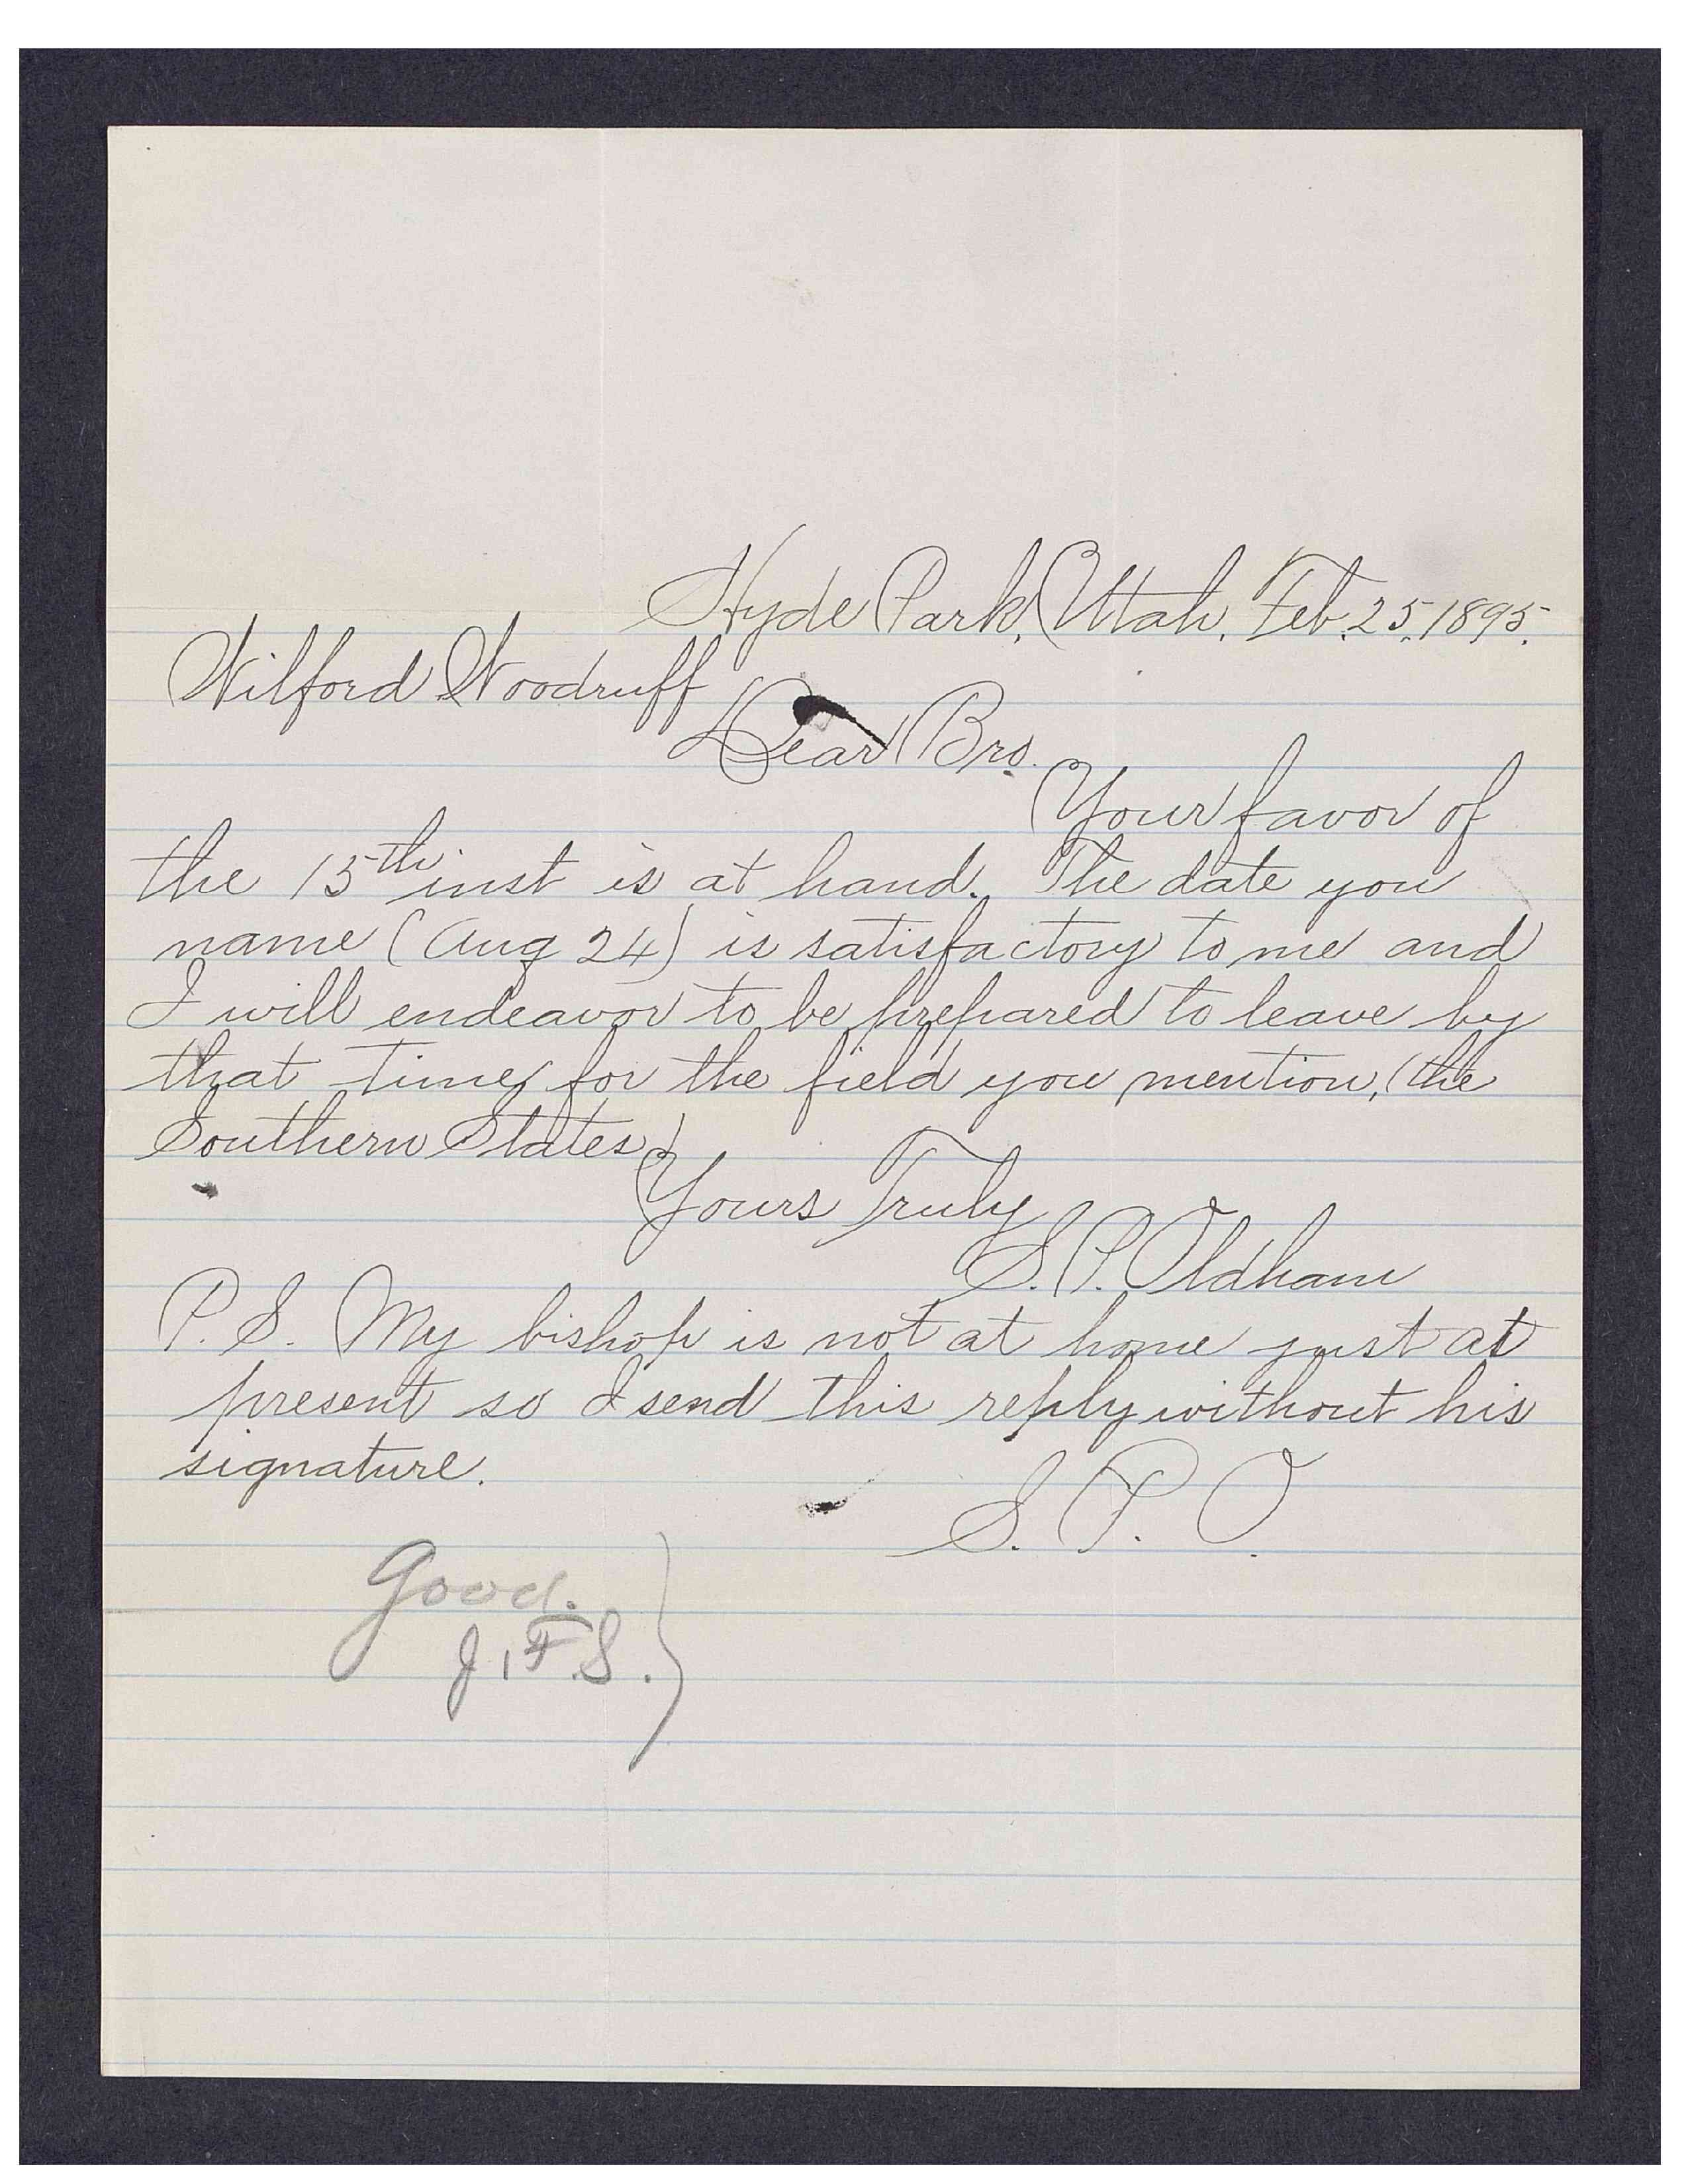 Hyde Park, Utah, Feb. 25, 1895.
Wilford Woodruff
Dear Bro.
Your favor of
the 15th inst is at hand. The date you
name (Aug 24) is satisfactory to me and
I will endeavor to be prepared to leave by
that time for the field you mention, (the
Southern States)
Yours Truly
S. P. Oldham
P. S. My bishop is not at home just at
present so I send this reply without his
signature.
S. P. O.
Good.
J. F. S.